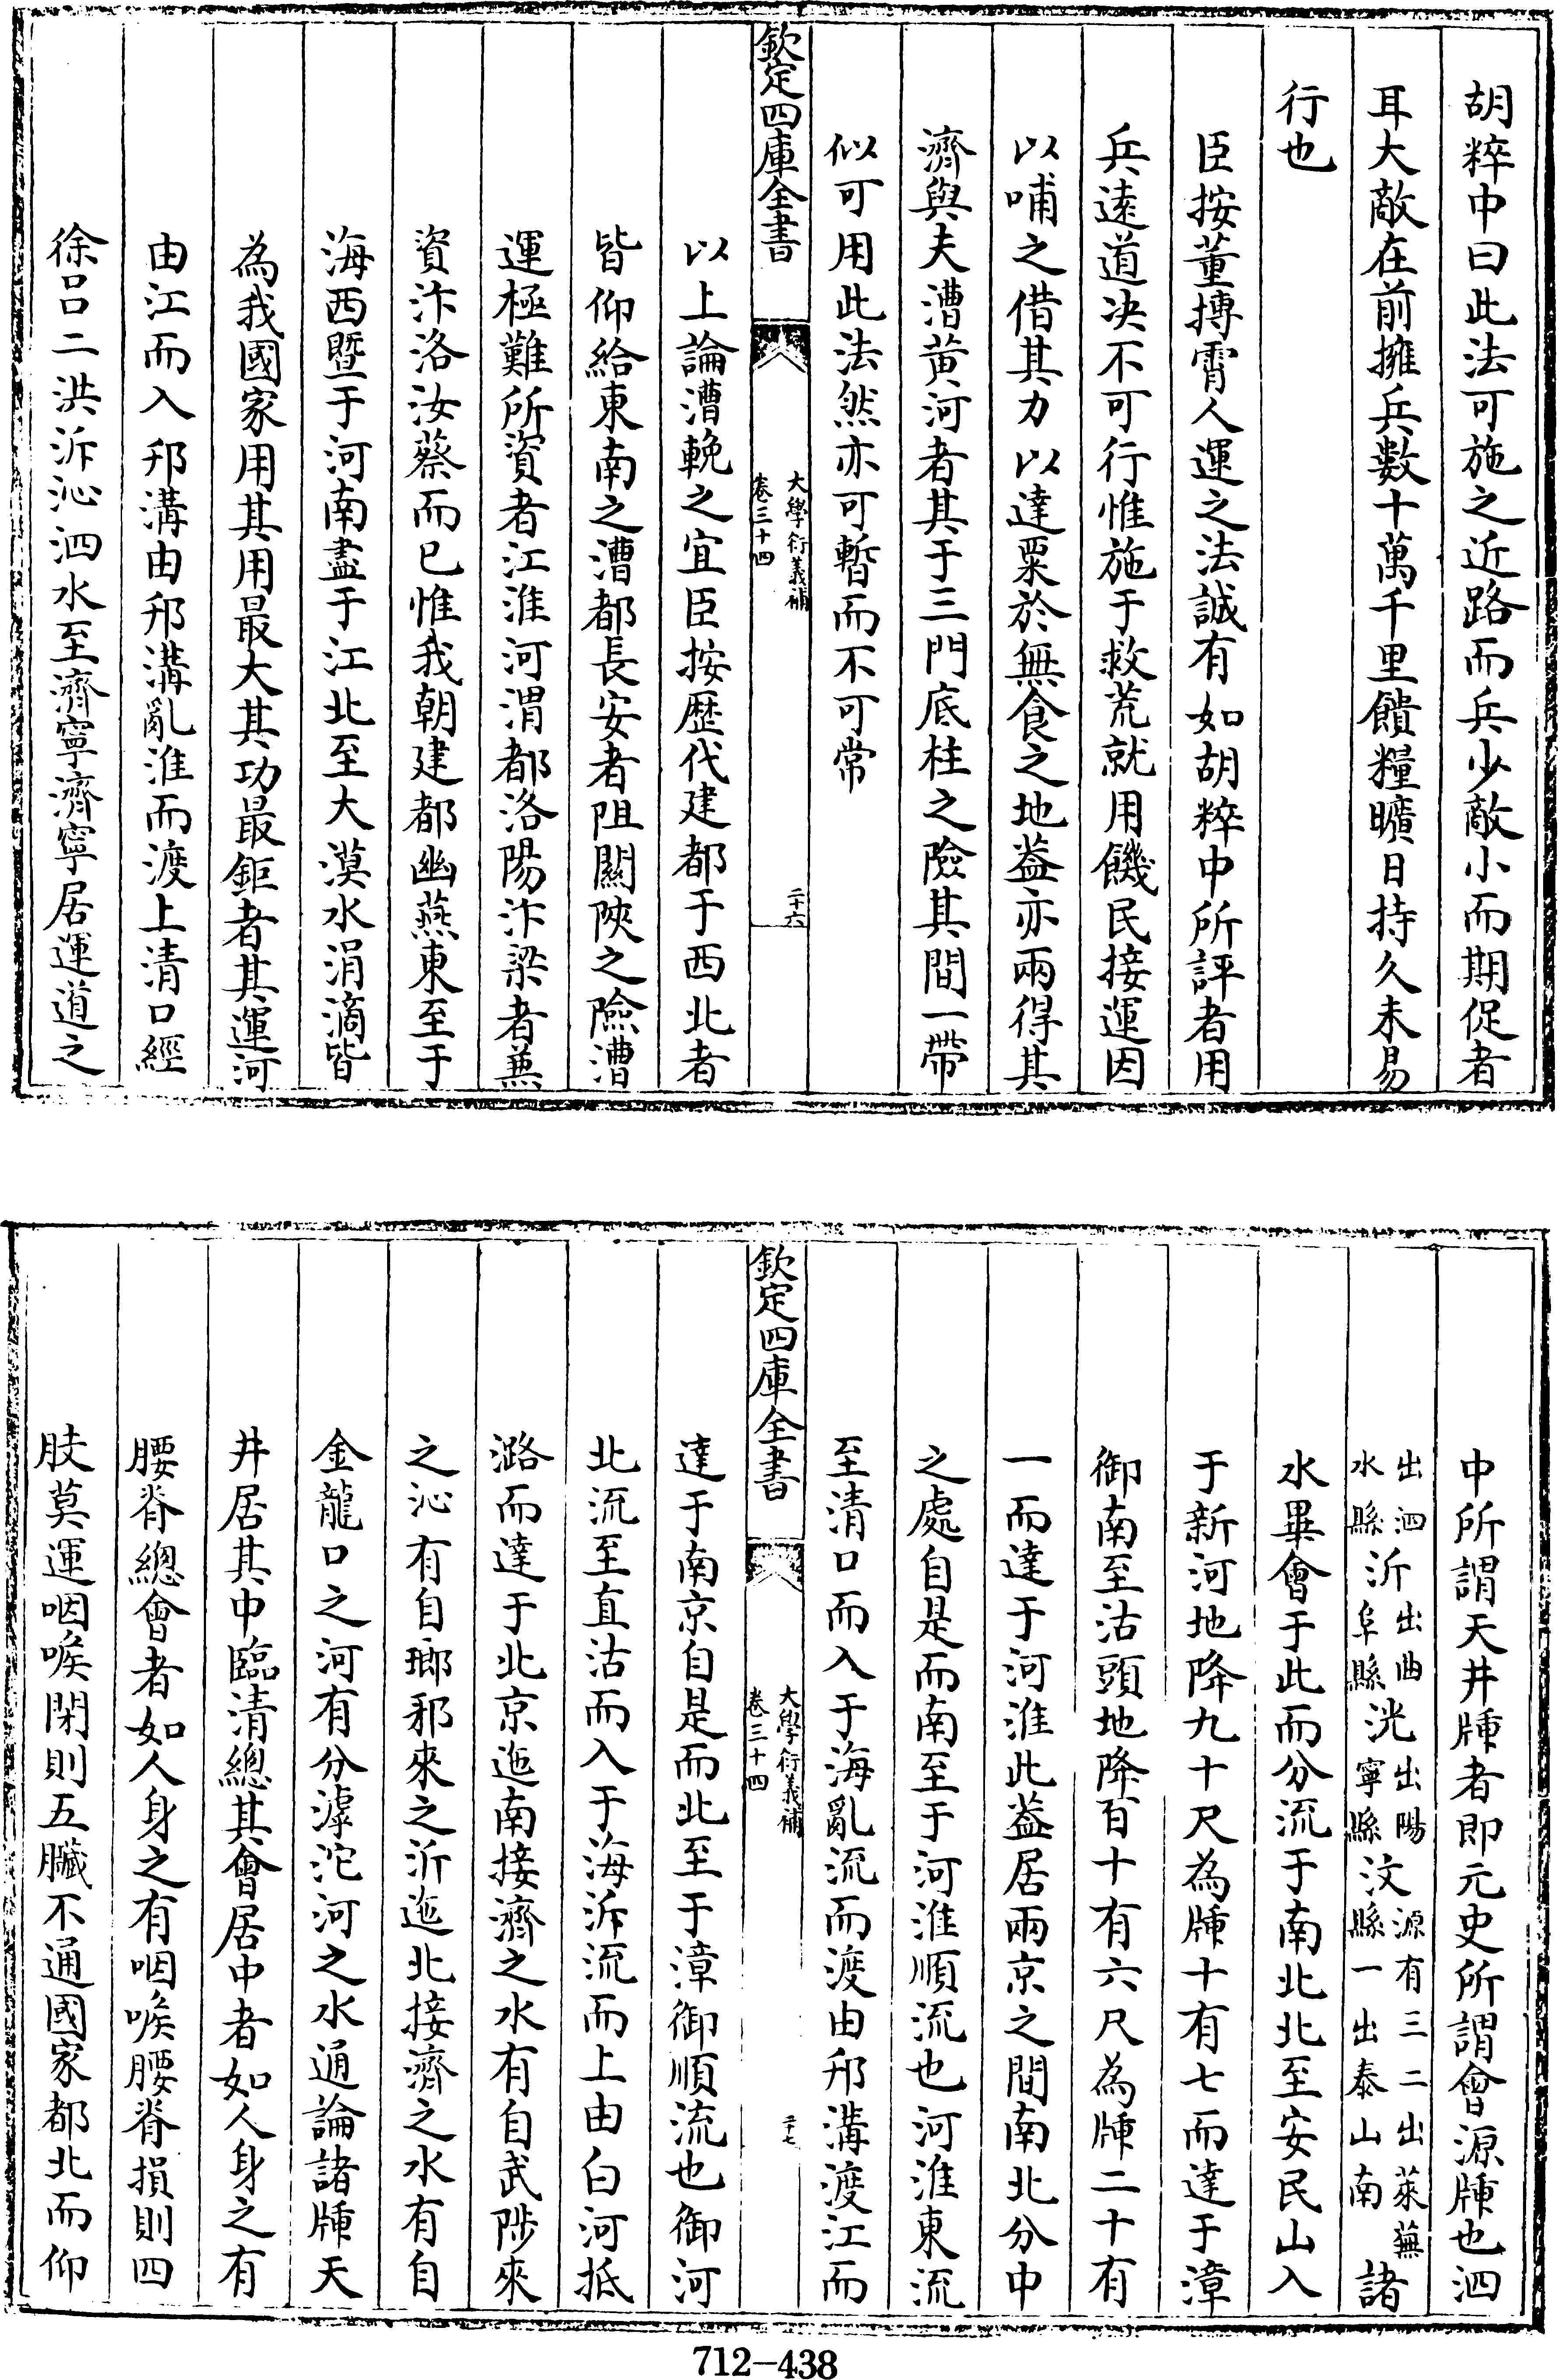 胡粹中曰此法可施之近路而兵少敵小而期促者
耳大敵在前擁兵數十萬千里饋糧曠日持久未易
行也
臣按董摶霄人運之法誠有如胡粹中所評者用
兵逺道决不可行惟施于救荒就用饑民接運因
以哺之借其力以達粟於無食之地葢亦兩得其
濟與夫漕黄河者其于三門底柱之險其間一帶
似可用此法然亦可暫而不可常
欽定四庫全書
大學衍義補
卷三十四
二十六
以上論漕輓之宜臣按歴代建都于西北者
皆仰給東南之漕都長安者阻關陜之險漕
運極難所資者江淮河渭都洛陽汴梁者兼
資汴洛汝蔡而已惟我朝建都幽燕東至于
海西暨于河南盡于江北至大漠水涓滴皆
為我國家用其用最大其功最鉅者其運河
由江而入邗溝由邗溝亂淮而渡上清口經
徐呂二洪泝沁泗水至濟寧濟寧居運道之
中所謂天井牐者即元史所謂會源牐也泗
出泗水縣沂出曲阜縣洸出陽寧縣汶源有三二出萊蕪縣一出泰山南諸
水畢會于此而分流于南北北至安民山入
于新河地降九十尺為牐十有七而達于漳
御南至沽頭地降百十有六尺為牐二十有
一而達于河淮此葢居兩京之間南北分中
之處自是而南至于河淮順流也河淮東流
至清口而入于海亂流而渡由邗溝渡江而
欽定四庫全書
大學衍義補
卷三十四
二十七
達于南京自是而北至于漳御順流也御河
北流至直沽而入于海泝流而上由白河抵
潞而達于北京迤南接濟之水有自武陟來
之沁有自瑯邪來之沂迤北接濟之水有自
金龍口之河有分滹沱河之水通論諸牐天
井居其中臨清總其會居中者如人身之有
腰脊總會者如人身之有咽喉腰脊損則四
肢莫運咽喉閉則五臟不通國家都北而仰
712-438